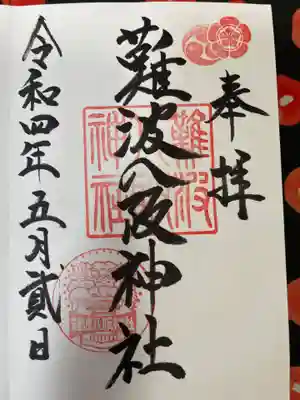 奉拝
難波八阪神社
令和四年五月貳日
難波
八阪
神社